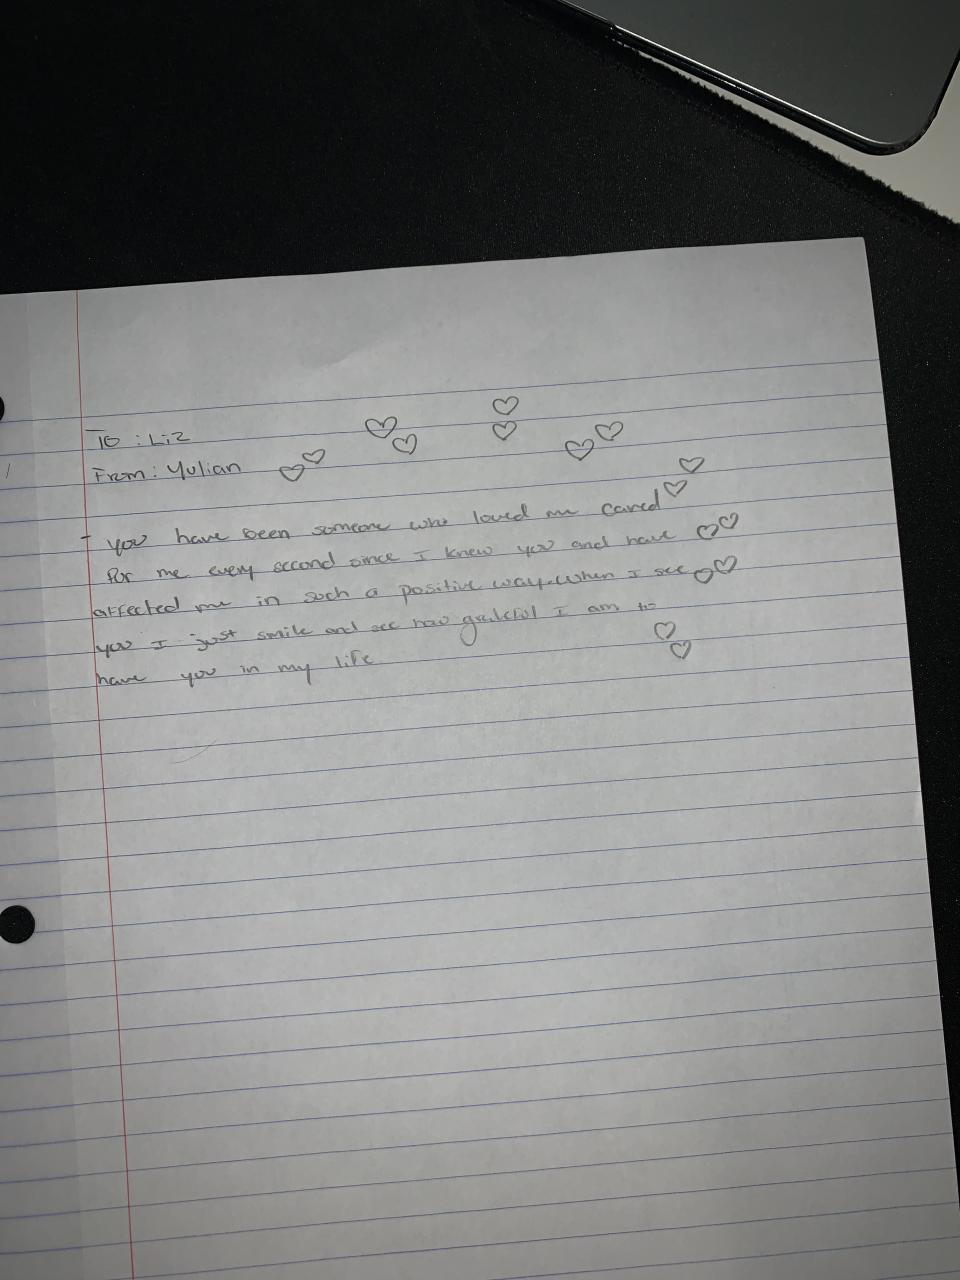 To : Liz
From : Yulian
- you have been someone who loved me cared
for me every second since I knew you and have
affected me in such a positive way. When I see
you I just smile and see how grateful I am to
have you in my life